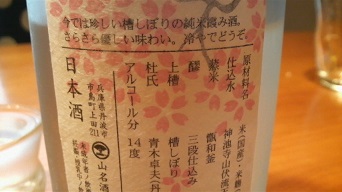 今では珍しい槽しぼりの純米濁み酒。
さらさら優しい味わい。冷やでどうぞ。
原材料名 米(国産)・米麹
仕込水 神池寺山伏流
蒸米 甑和釜
醪 三段仕込み
上槽 槽しぼり
杜氏 青木卓夫(丹
アルコール分 14度
日本酒
兵庫県丹波市
市島町上田211
山名酒